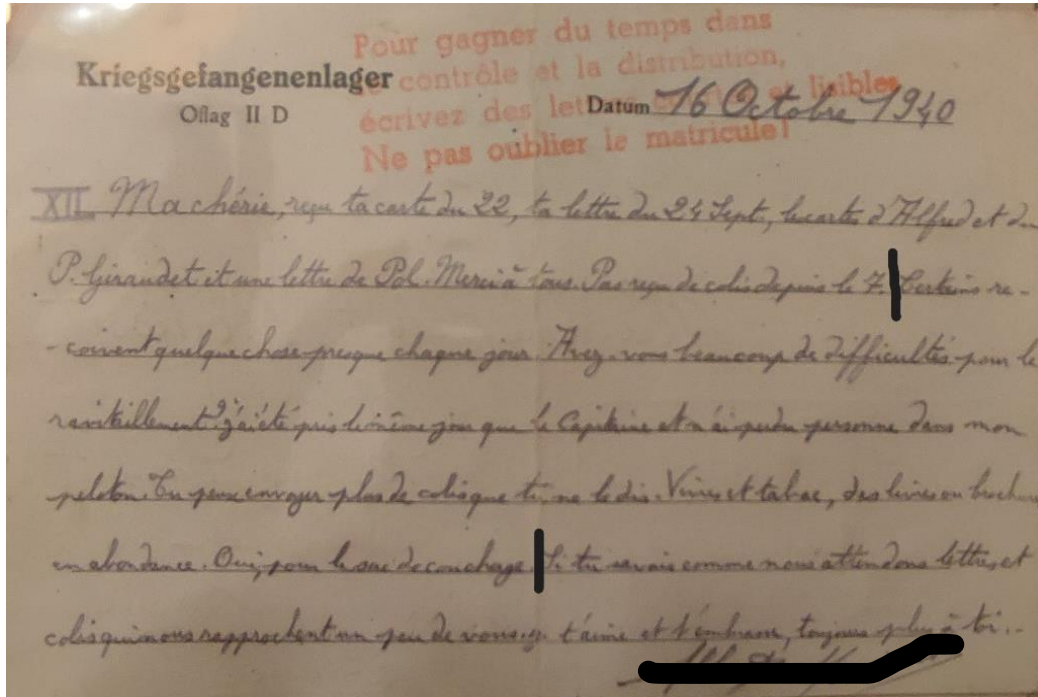 Pour gagner du temps dans
Kriegsgefangenenlager
le contrôle et la distribution,
Oflag II D
écrivez des lettres et lisibles
Datum 16 Octobre 1940
Ne pas oublier le matricule!
XII Ma chérie, reçu ta carte du 22, ta lettre du 24 Sept, la carte d'Alfred et du
P. Giraudet et une lettre de Pol. Merci à tous. Pas reçu de colis depuis le 7. Certains re-
-çoivent quelque chose presque chaque jour. Avez-vous beaucoup de difficultés pour le
ravitaillement? J'ai été pris le même jour que le Capitaine et n'ai perdu personne dans mon
peloton. Tu peux envoyer plus de colis que tu ne le dis. Vivres et tabac, des livres ou
en abondance. Oui, pour le sac de couchage. Si tu savais comme nous attendons lettres et
colis qui nous rapprochent un peu de vous. t'aime et t'embrasse, toujours plus à toi.-